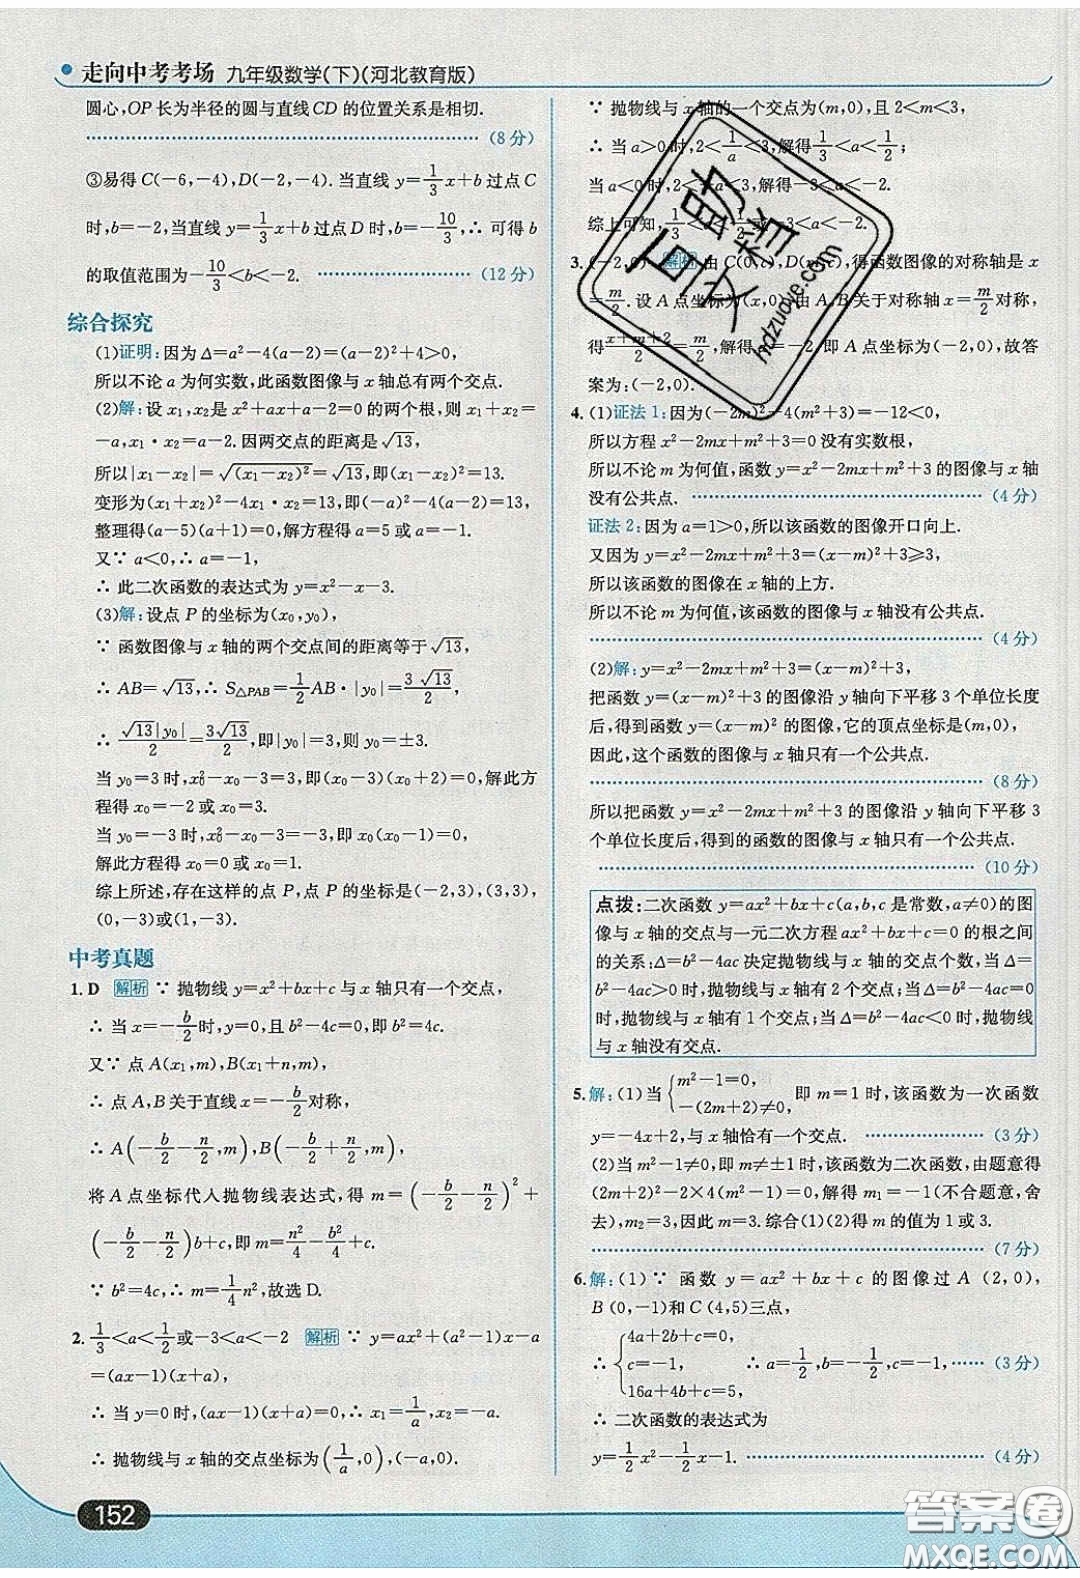 走向中考考场 九年级数学(下)(河北教育版)
圆心,OP长为半径的圆与直线CD的位置关系是相切.
(8分)
③易得C(-6,-4),D(-2,-4).当直线y=1/3x+b过点C
时,b=-2,当直线y=1/3x+b过点D时,b=-10/3,∴可得b
的取值范围为-10/3<b<-2. (12分)
综合探究
(1)证明:因为Δ=a²-4(a-2)=(a-2)²+4>0,
所以不论a为何实数,此函数图像与x轴总有两个交点.
(2)解:设x₁,x₂是x²+ax+a-2=0的两个根,则x₁+x₂=
-a,x₁·x₂=a-2.因两交点的距离是√13,
所以|x₁-x₂|=√(x₁-x₂)²=√13,即(x₁-x₂)²=13.
变形为(x₁+x₂)²-4x₁·x₂=13,即(-a)²-4(a-2)=13,
整理得(a-5)(a+1)=0,解方程得a=5或a=-1.
又∵a<0,∴a=-1,
∴此二次函数的表达式为y=x²-x-3.
(3)解:设点P的坐标为(x₀,y₀),
∵函数图像与x轴的两个交点间的距离等于√13,
∴AB=√13,∴S△PAB=1/2AB·|y₀|=3√13/2,
∴√13|y₀|/2=3√13/2,即|y₀|=3,则y₀=±3.
当y₀=3时,x₀²-x₀-3=3,即(x₀-3)(x₀+2)=0,解此方
程得x₀=-2或x₀=3.
当y₀=-3时,x₀²-x₀-3=-3,即x₀(x₀-1)=0,
解此方程得x₀=0或x₀=1.
综上所述,存在这样的点P,点P的坐标是(-2,3),(3,3),
(0,-3)或(1,-3).
中考真题
1.D 解析 ∵抛物线y=x²+bx+c与x轴只有一个交点,
∴当x=-b/2时,y=0,且b²-4c=0,即b²=4c.
又∵点A(x₁,m),B(x₁+n,m),
∴点A,B关于直线x=-b/2对称,
∴A(-b/2-n/2,m),B(-b/2+n/2,m),
将A点坐标代人抛物线表达式,得m=(-b/2-n/2)²+
(-b/2-n/2)b+c,即m=n²/4-b²/4+c.
∵b²=4c,∴m=1/4n²,故选D.
2.1/3<a<1/2或-3<a<-2 解析 ∵y=ax²+(a²-1)x-a
=(ax-1)(x+a),
∴当y=0时,(ax-1)(x+a)=0,∴x₁=1/a,x₂=-a.
∴抛物线与x轴的交点坐标为(1/a,0),(-a,0).
152
∵抛物线与x轴的一个交点为(m,0),且2<m<3,
∴当a>0时,2<1/a<3,解得1/3<a<1/2;
当a<0时,2<-a<3,解得-3<a<-2.
综上可知,1/3<a<1/2或-3<a<-2.
3.(-2,0) 解析 由C(0,c),D(m,c),得函数图像的对称轴是x
=m/2.设A点坐标为(x,0),由A,B关于对称轴x=m/2对称,
得x+m+2/2=m/2,解得x=-2,即A点坐标为(-2,0),故答
案为:(-2,0).
4.(1)证法1:因为(-2m)²-4(m²+3)=-12<0,
所以方程x²-2mx+m²+3=0没有实数根,
所以不论m为何值,函数y=x²-2mx+m²+3的图像与x轴
没有公共点. (4分)
证法2:因为a=1>0,所以该函数的图像开口向上.
又因为y=x²-2mx+m²+3=(x-m)²+3≥3,
所以该函数的图像在x轴的上方.
所以不论m为何值,该函数的图像与x轴没有公共点.
(4分)
(2)解:y=x²-2mx+m²+3=(x-m)²+3,
把函数y=(x-m)²+3的图像沿y轴向下平移3个单位长度
后,得到函数y=(x-m)²的图像,它的顶点坐标是(m,0),
因此,这个函数的图像与x轴只有一个公共点.
(8分)
所以把函数y=x²-2mx+m²+3的图像沿y轴向下平移3
个单位长度后,得到的函数的图像与x轴只有一个公共点.
(10分)
点拨:二次函数y=ax²+bx+c(a,b,c是常数,a≠0)的图
像与x轴的交点与一元二次方程ax²+bx+c=0的根之间
的关系:Δ=b²-4ac决定抛物线与x轴的交点个数,当Δ=
b²-4ac>0时,抛物线与x轴有2个交点;当Δ=b²-4ac=0
时,抛物线与x轴有1个交点;当Δ=b²-4ac<0时,抛物线
与x轴没有交点.
5.解:(1)当{m²-1=0, -(2m+2)≠0, 即m=1时,该函数为一次函数
y=-4x+2,与x轴恰有一个交点. (3分)
(2)当m²-1≠0,即m≠±1时,该函数为二次函数,由题意得
(2m+2)²-2×4(m²-1)=0,解得m₁=-1(不合题意,舍
去),m₂=3,因此m=3.综合(1)(2)得m的值为1或3.
(7分)
6.解:(1)∵函数y=ax²+bx+c的图像过A(2,0),
B(0,-1)和C(4,5)三点,
∴{4a+2b+c=0, c=-1, 16a+4b+c=5, ∴a=1/2,b=-1/2,c=-1, (3分)
∴二次函数的表达式为
y=1/2x²-1/2x-1. (4分)
互助文档
hdzuoye.com
答案圈
MXQE.COM